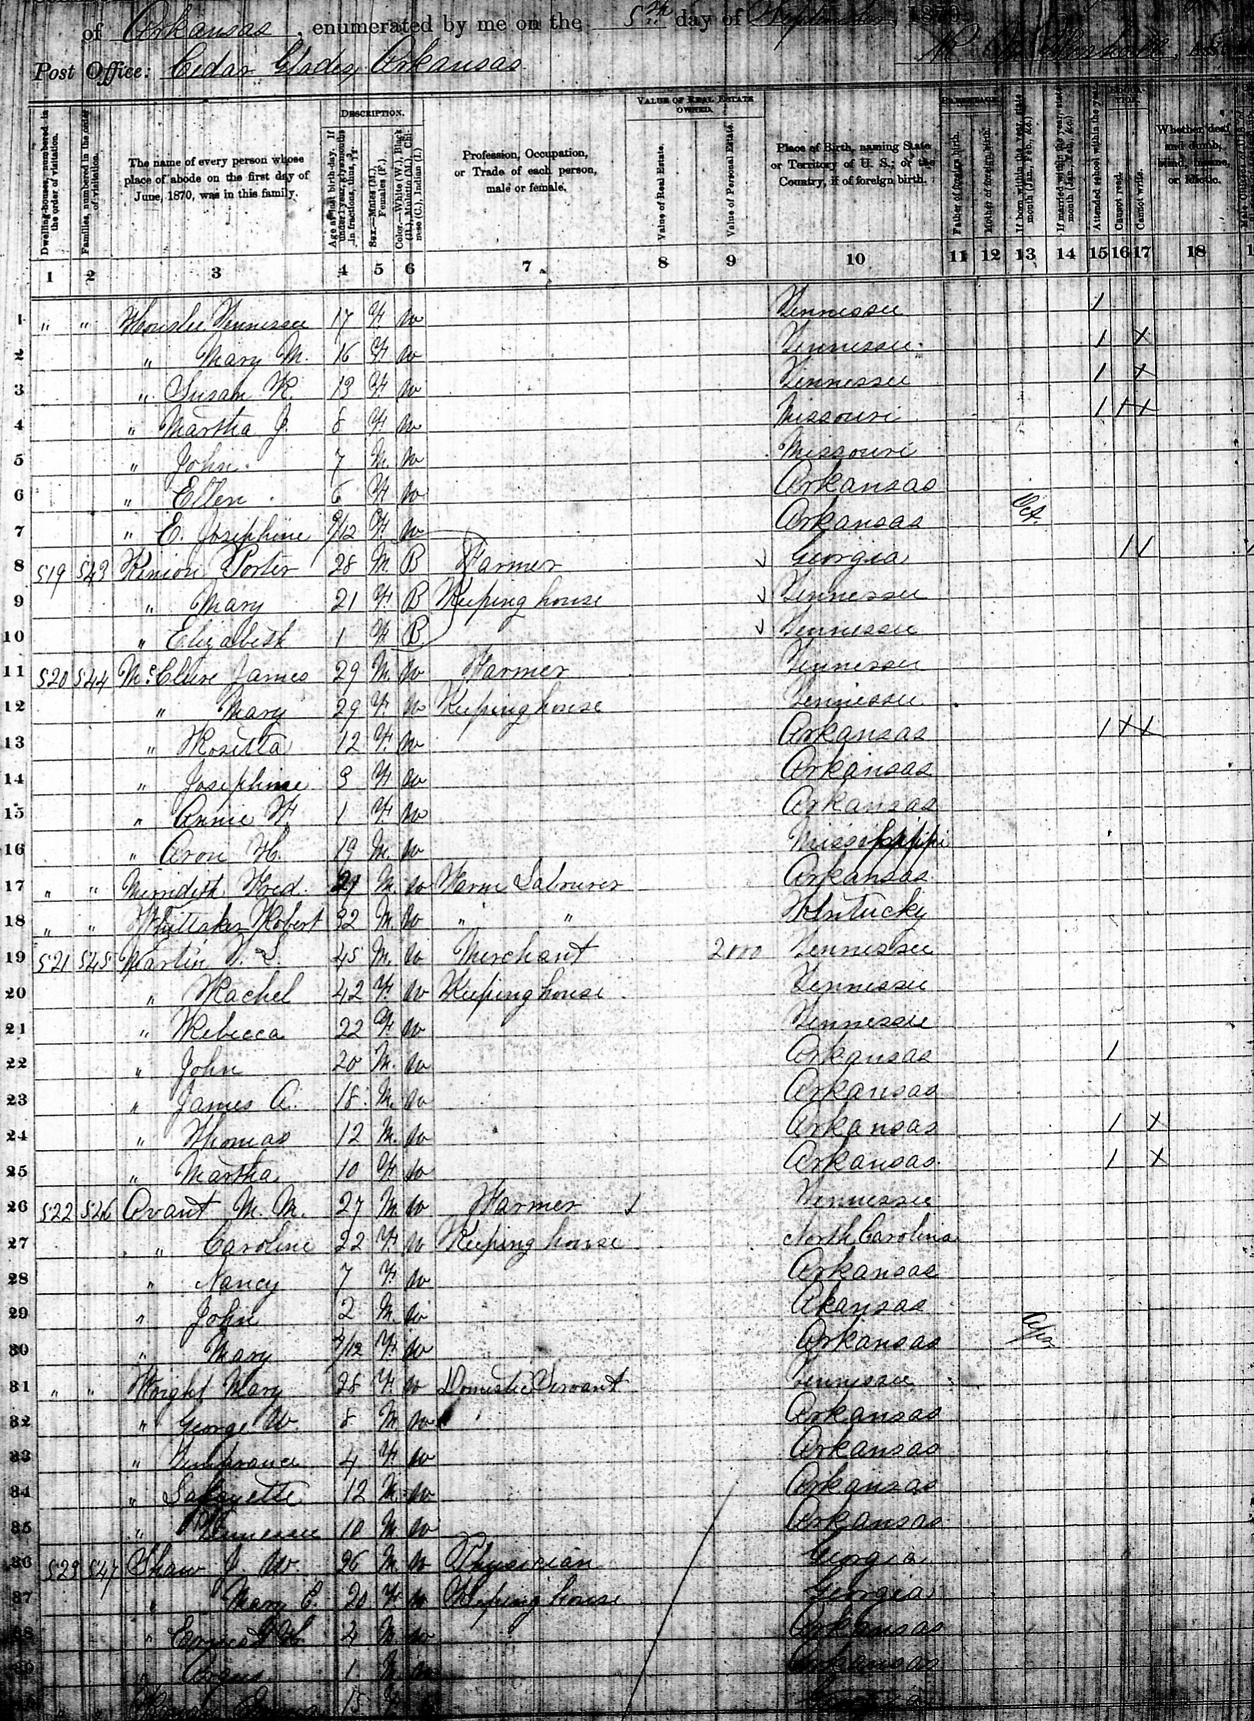 of Arkansas, enumerated by me on the 5th day of September, 1870.
Post Office: Cedar Glades Arkansas
DESCRIPTION.
VALUE OF REAL ESTATE OWNED.
PARENTAGE.
Dwelling-houses, numbered in the order of visitation.
Families, numbered in the order of visitation.
The name of every person whose place of abode on the first day of June, 1870, was in this family.
Age at last birth-day. If under 1 year, give months in fractions, thus,
Sex.—Males (M.), Females (F.),
Color.—White (W.), Black (B.), Mulatto (M.), Chinese (C.), Indian (I.)
Profession, Occupation, or Trade of each person, male or female.
Value of Real Estate.
Value of Personal Estate.
Place of Birth, naming State or Territory of U. S.; or the Country, if of foreign birth.
Father of foreign birth.
Mother of foreign birth.
If born within the year, state month (Jan., Feb., &c.)
If married within the year, state month (Jan., Feb., &c.)
Attended school within the year.
Cannot read.
Cannot write.
Whether deaf and dumb, blind, insane, or idiotic.
1 2 3 4 5 6 7 8 9 10 11 12 13 14 15 16 17 18
1 " " Tennessee 17 F W Tennessee 1
2 " Mary M. 16 F W Tennessee 1 X
3 " Susan R. 13 F W Tennessee 1 X
4 " Martha J. 8 F W Missouri 1 X X
5 " John 7 M W Missouri
6 " Ellen 6 F W Arkansas
7 " E. Josephine 9/12 F W Arkansas Oct.
8 519 543 Kinion Porter 28 M B Farmer Georgia 1 1
9 " Mary 21 F B Keeping house Tennessee
10 " Elizabeth 1 F B Tennessee
11 520 544 McClure James 29 M W Farmer Tennessee
12 " Mary 29 F W Keeping house Tennessee
13 " Rosetta 12 F W Arkansas 1 X X
14 " Josephine 3 F W Arkansas
15 " Annie F. 1 F W Arkansas
16 " Aron H. 19 M W Mississippi
17 " " Merridith Fred. M W Farm Labourer Arkansas
18 " " Whittaker Robert 32 M W " " Kentucky
19 521 545 Martin 45 M W Merchant 2000 Tennessee
20 " Rachel 42 F W Keeping house Tennessee
21 " Rebecca 22 F W Tennessee
22 " John 20 M W Arkansas 1
23 " James A. 18 M W Arkansas
24 " Thomas 12 M W Arkansas 1 X
25 " Martha 10 F W Arkansas 1 X
26 522 526 Avant M. M. 27 M W Farmer Tennessee
27 " Caroline 22 F W Keeping house North Carolina
28 " Nancy 7 F W Arkansas
29 " John 2 M W Akansas
30 " Mary F W Arkansas Apr
31 " " Wright Mary 28 F W Domestic Servant Tennessee
32 " George W. 8 M W Arkansas
33 " Temprance 4 F W Arkansas
34 " Lafayette 12 M W Arkansas
35 " Tennessee 10 M W Arkansas
36 523 547 Shaw J. W. 26 M W Physician Georgia
37 " Mary E. 20 F W Keeping house Georgia
38 " M W Arkansas
39 " 1 M W Arkansas
15